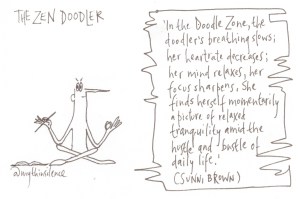 THE ZEN DOODLER
'In the Doodle Zone, the
doodler's breathing slows;
her heartrate decreases;
her mind relaxes, her
focus sharpens. She
finds herself momentarily
a picture of relaxed
tranquility amid the
hustle and bustle of
daily life.'
(SUNNI BROWN)